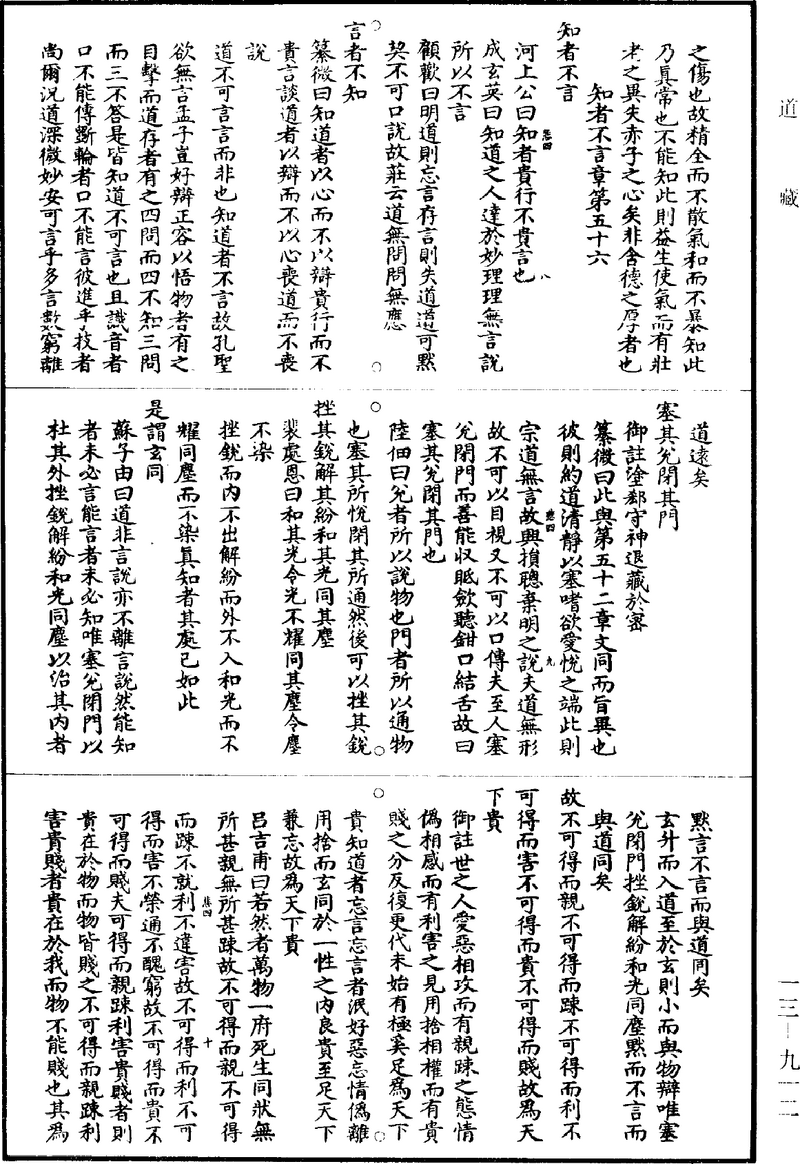 道藏
之傷也故精全而不散氣和而不暴知此
乃真常也不能知此則益生使氣而有壯
老之異失赤子之心矣非含德之厚者也
知者不言章第五十六
知者不言
河上公曰知者貴行不貴言也
成玄英曰知道之人達於妙理理無言說
所以不言
顧歡曰明道則忘言存言則失道道可默
契不可口說故莊云道無問問無應
言者不知
纂微曰知道者以心而不以辯貴行而不
貴言談道者以辯而不以心喪道而不喪
說
道不可言言而非也知道者不言故孔聖
欲無言孟子豈好辯正容以悟物者有之
目擊而道存者有之四問而四不知三問
而三不答是皆知道不可言也且識音者
口不能傳斲輪者口不能言彼進乎技者
尚爾況道深微妙安可言乎多言數窮離
道遠矣
塞其兌閉其門
御註塗郄守神退藏於密
纂微曰此與第五十二章文同而旨異也
彼則約道清靜以塞嗜欲愛悅之端此則
宗道無言故興損聰棄明之說夫道無形
故不可以目視又不可以口傳夫至人塞
兌閉門而善能収眡斂聽鉗口結舌故曰
塞其兌閉其門也
陸佃曰兌者所以說物也門者所以通物
也塞其所悅閉其所通然後可以挫其銳
挫其銳解其紛和其光同其塵
裴處恩曰和其光令光不耀同其塵令塵
不染
挫銳而內不出解紛而外不入和光而不
耀同塵而不染真知者其處己如此
是謂玄同
蘇子由曰道非言說亦不離言說然能知
者未必言能言者未必知唯塞兌閉門以
杜其外挫銳解紛和光同塵以治其內者
默言不言而與道同矣
玄升而入道至於玄則小而與物辯唯塞
兌閉門挫銳解紛和光同塵默而不言而
與道同矣
故不可得而親不可得而踈不可得而利不
可得而害不可得而貴不可得而賤故為天
下貴
御註世之人愛惡相攻而有親踈之態情
偽相感而有利害之見用捨相權而有貴
賤之分反復更代未始有極奚足為天下
貴知道者忘言忘言者泯好惡忘情偽離
用捨而玄同於一性之內良貴至足天下
兼忘故為天下貴
呂吉甫曰若然者萬物一府死生同狀無
所甚親無所甚踈故不可得而親不可得
而踈不就利不違害故不可得而利不可
得而害不榮通不醜窮故不可得而貴不
可得而賤夫可得而親踈利害貴賤者則
貴在於物而物皆賤之不可得而親踈利
害貴賤者貴在於我而物不能賤也其為
卷四 八
卷四 九
卷四 十
一三－九一二